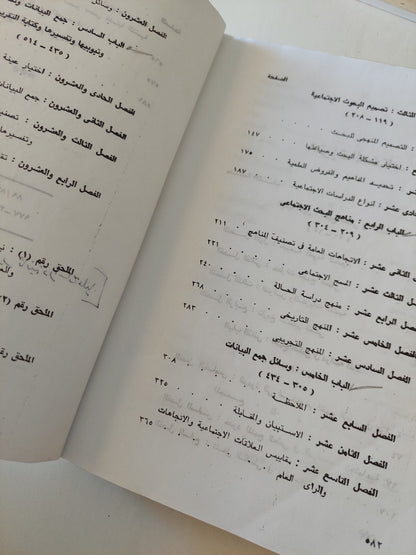 الصفحة
الثالث : تصميم البحوث الاجتماعية
( ١١٩ – ٢٠٨ )
: التصميم المنهجى للبحث ١٤٧
: اختيار مشكلة البحث وصياغتها ١٧٥
: تحديد المفاهيم والفروض العلمية ١٨٧
عشر : أنواع الدراسات الاجتماعية
الباب الرابع : مناهج البحث الاجتماعى
( ٢٠٩ – ٣٠٤ )
الثانى عشر : الاتجاهات العامة فى تصنيف المناهج ٢١١
الثالث عشر : المسح الاجتماعى ٢٢١
الرابع عشر : منهج دراسة الحالة ٢٤٠
الفصل الخامس عشر : المنهج التاريخى ٢٦٨
الفصل السادس عشر : المنهج التجريبى ٢٨٣
الباب الخامس : وسائل جمع البيانات
( ٣٠٥ – ٤٣٤ )
الفصل السابع عشر : الملاحظة ٣٠٨
الفصل الثامن عشر : الاستبيان والمقابلة ٣٢٥
الفصل التاسع عشر : مقاييس العلاقات الاجتماعية والاتجاهات ٣٦٥
والرأى العام
٥٨٢
الفصل العشرون : وسائل
الباب السادس : جمع البيانات
وتبويبها وتفسيرها وكتابة التقرير
( ٤٣٥ – ٥١٤ )
الفصل الحادى والعشرون : اختيار عينة
الفصل الثانى والعشرون : جمع البيانات
الفصل الثالث والعشرون : تصنيف
وتفسيرها
الفصل الرابع والعشرون :
الملحق رقم (١) :
الملحق رقم